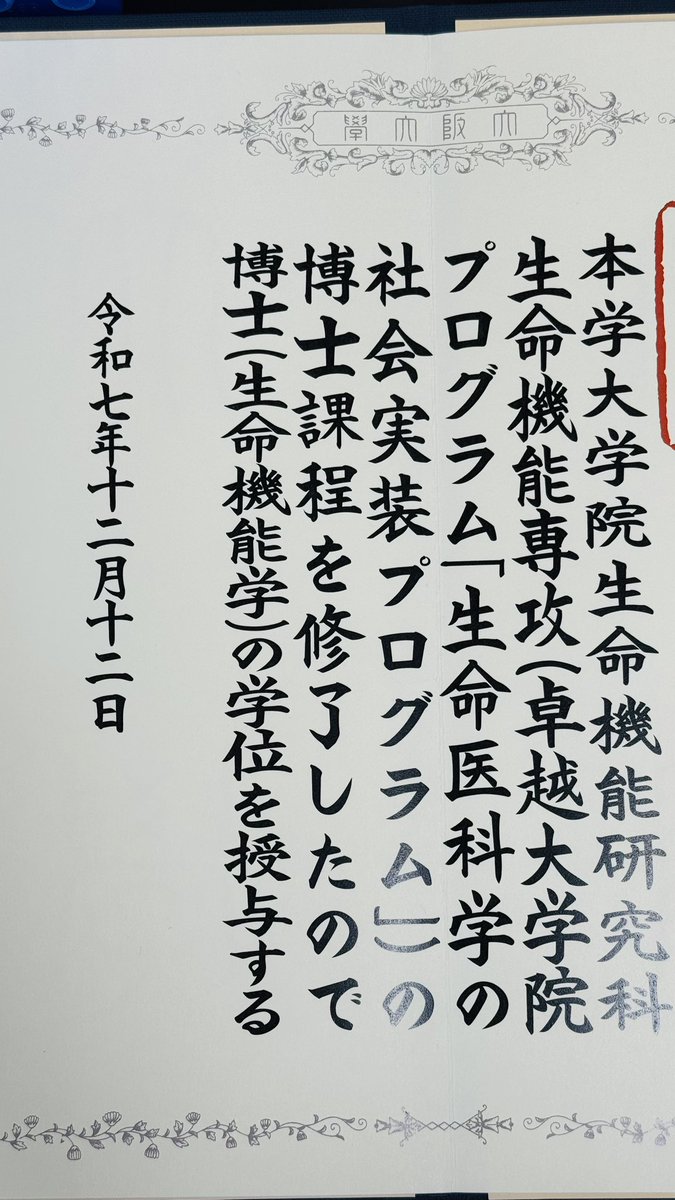 大阪大學
本学大学院生命機能研究科
生命機能専攻(卓越大学院
プログラム「生命医科学の
社会実装プログラム」)の
博士課程を修了したので
博士(生命機能学)の学位を授与する
令和七年十二月十二日